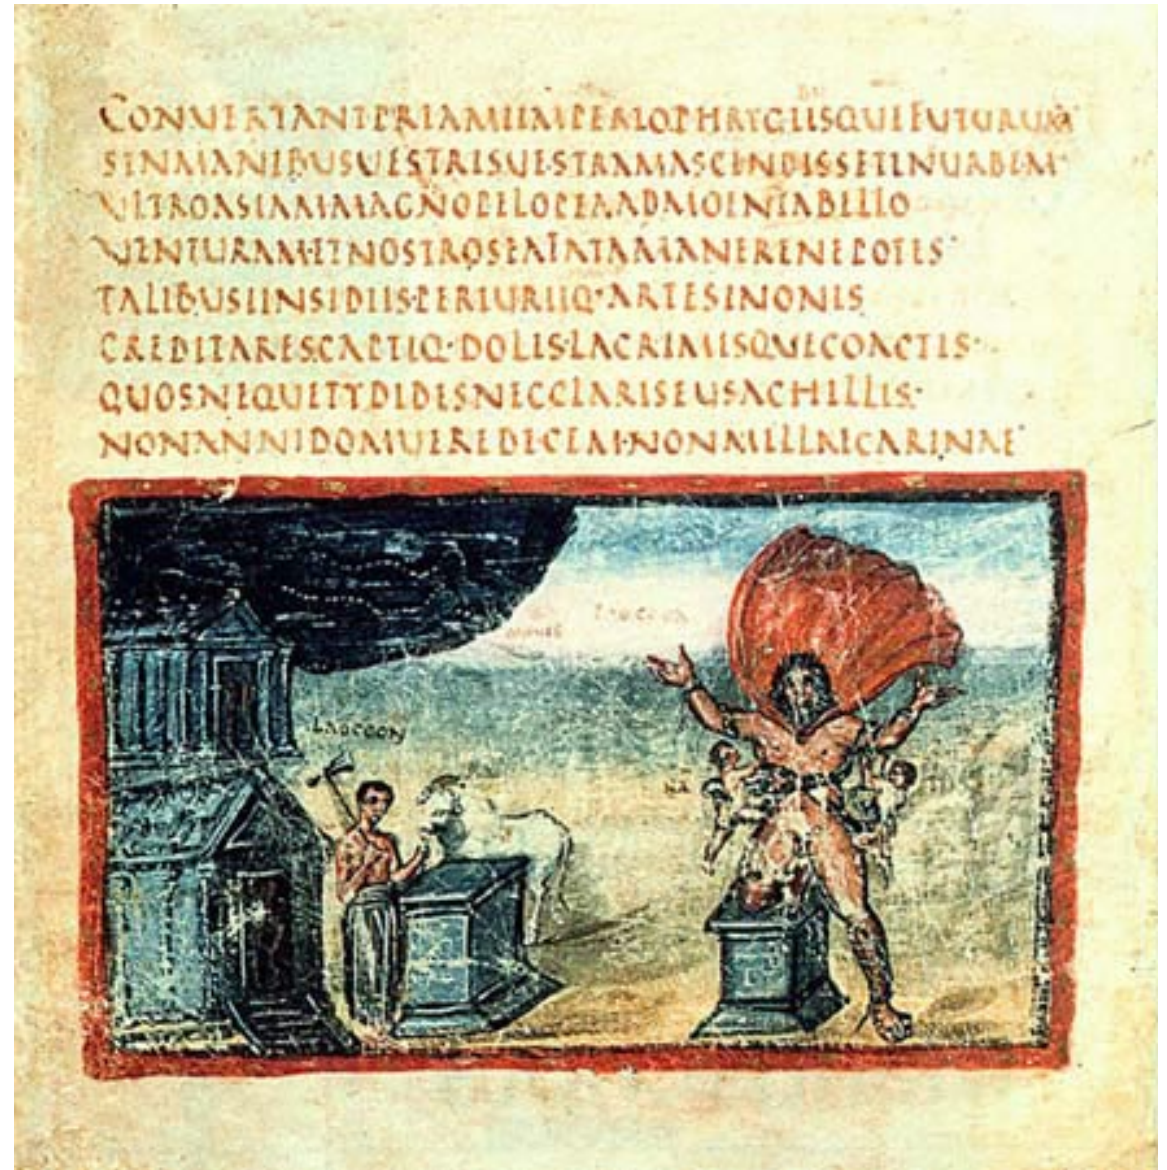 CONUERTANTPRIAMIIMPERIOPHRYGIISQUEFUTURUM
SINMANIBUSUESTRISUESTRAMASCENDISSETINURBEM·
ULTROASIAMMAGNOPELOPEAADMOENIABELLO
UENTURAM·ETNOSTROSEAFATAMANERENEPOTES·
TALIBUSINSIDIIS·PERIURIIQ·ARTESINONIS
CREDITARES·CAPTIQ·DOLIS·LACRIMISQUECOACTIS·
QUOSNEQUETYDIDESNECCLARISEUSACHILLIS·
NONANNIDOMUEREDECEM·NONMILLECARINAE·
LAOCOON